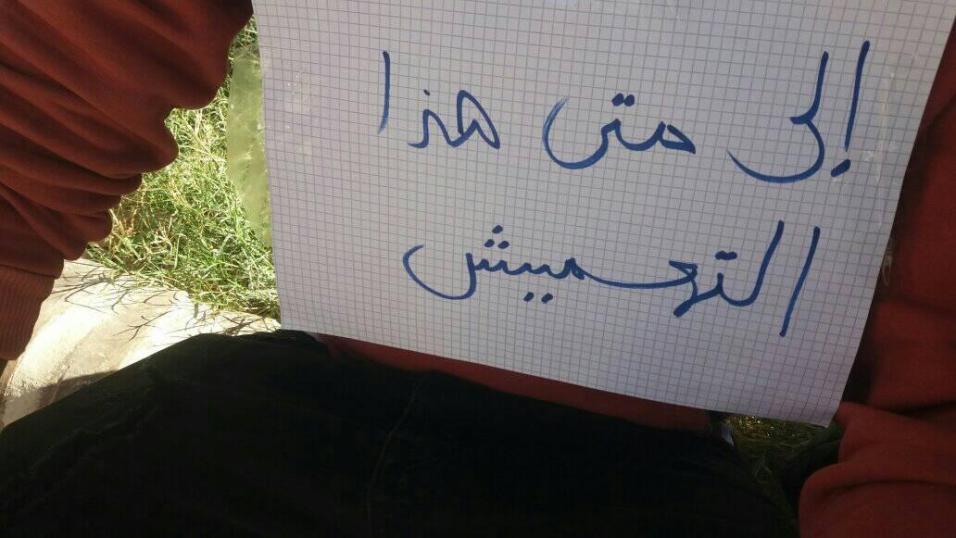 إلى متى هذا
التهميش